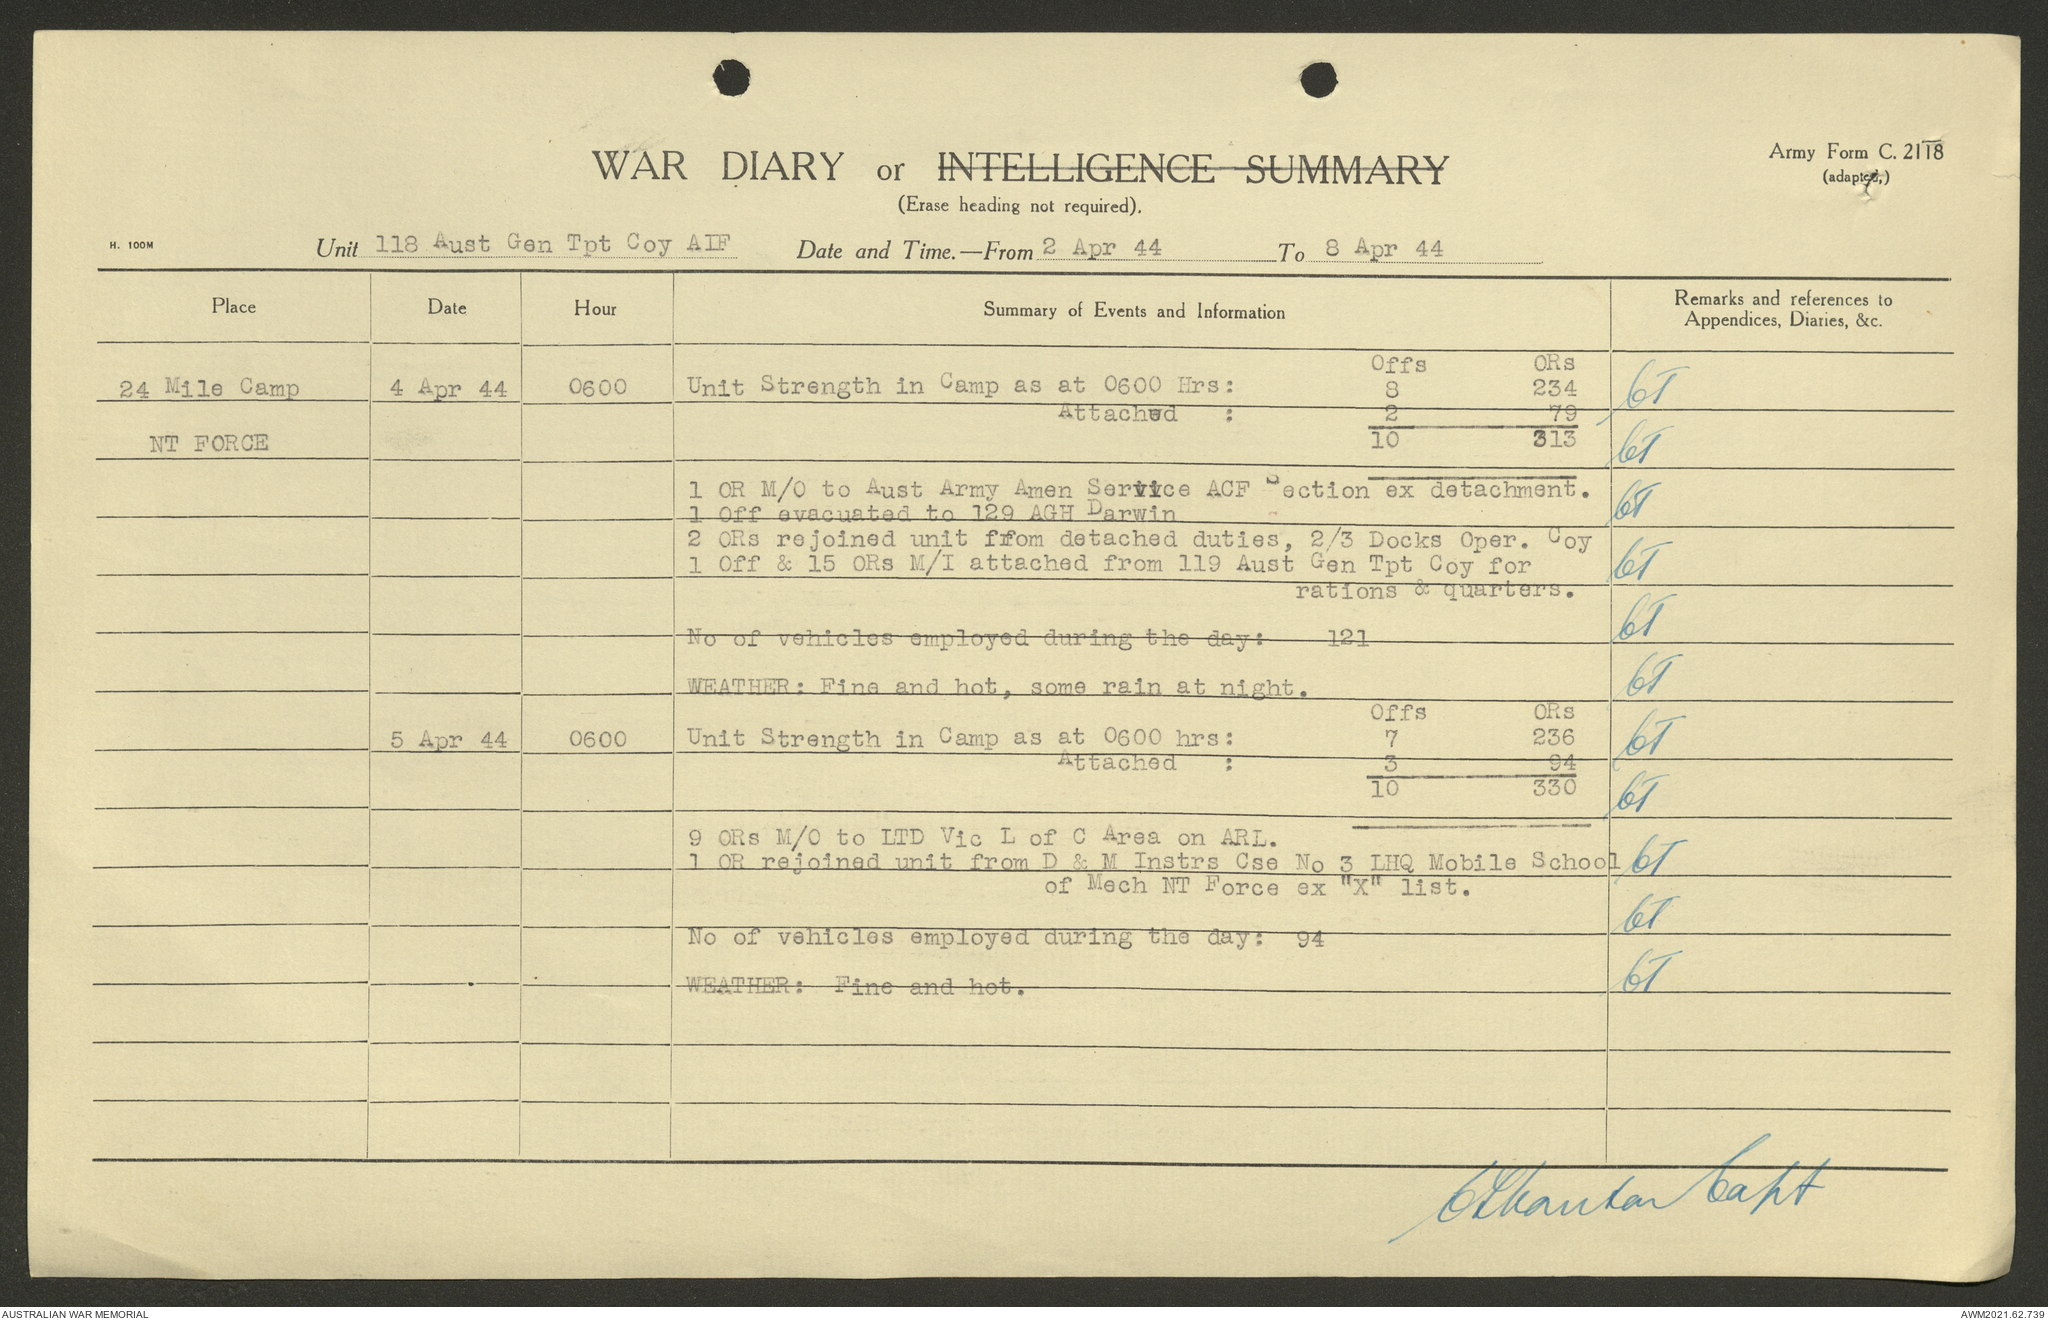 WAR DIARY or INTELLIGENCE SUMMARY
(Erase heading not required).
Army Form C. 2118
(adapted,)
H. 100M
Unit 118 Aust Gen Tpt Coy AIF Date and Time.—From 2 Apr 44 To 8 Apr 44
Place Date Hour Summary of Events and Information Remarks and references to
Appendices, Diaries, &c.
Offs ORs
24 Mile Camp 4 Apr 44 0600 Unit Strength in Camp as at 0600 Hrs: 8 234
Attached : 2 79
NT FORCE 10 313
1 OR M/O to Aust Army Amen Service ACF Section ex detachment.
1 Off evacuated to 129 AGH Darwin
2 ORs rejoined unit from detached duties, 2/3 Docks Oper. Coy
1 Off & 15 ORs M/I attached from 119 Aust Gen Tpt Coy for
rations & quarters.
No of vehicles employed during the day: 121
WEATHER: Fine and hot, some rain at night.
Offs ORs
5 Apr 44 0600 Unit Strength in Camp as at 0600 hrs: 7 236
Attached : 3 94
10 330
9 ORs M/O to LTD Vic L of C Area on ARL.
1 OR rejoined unit from D & M Instrs Cse No 3 LHQ Mobile School
of Mech NT Force ex "X" list.
No of vehicles employed during the day: 94
WEATHER: Fine and hot.
Capt
AUSTRALIAN WAR MEMORIAL
AWM2021.62.739